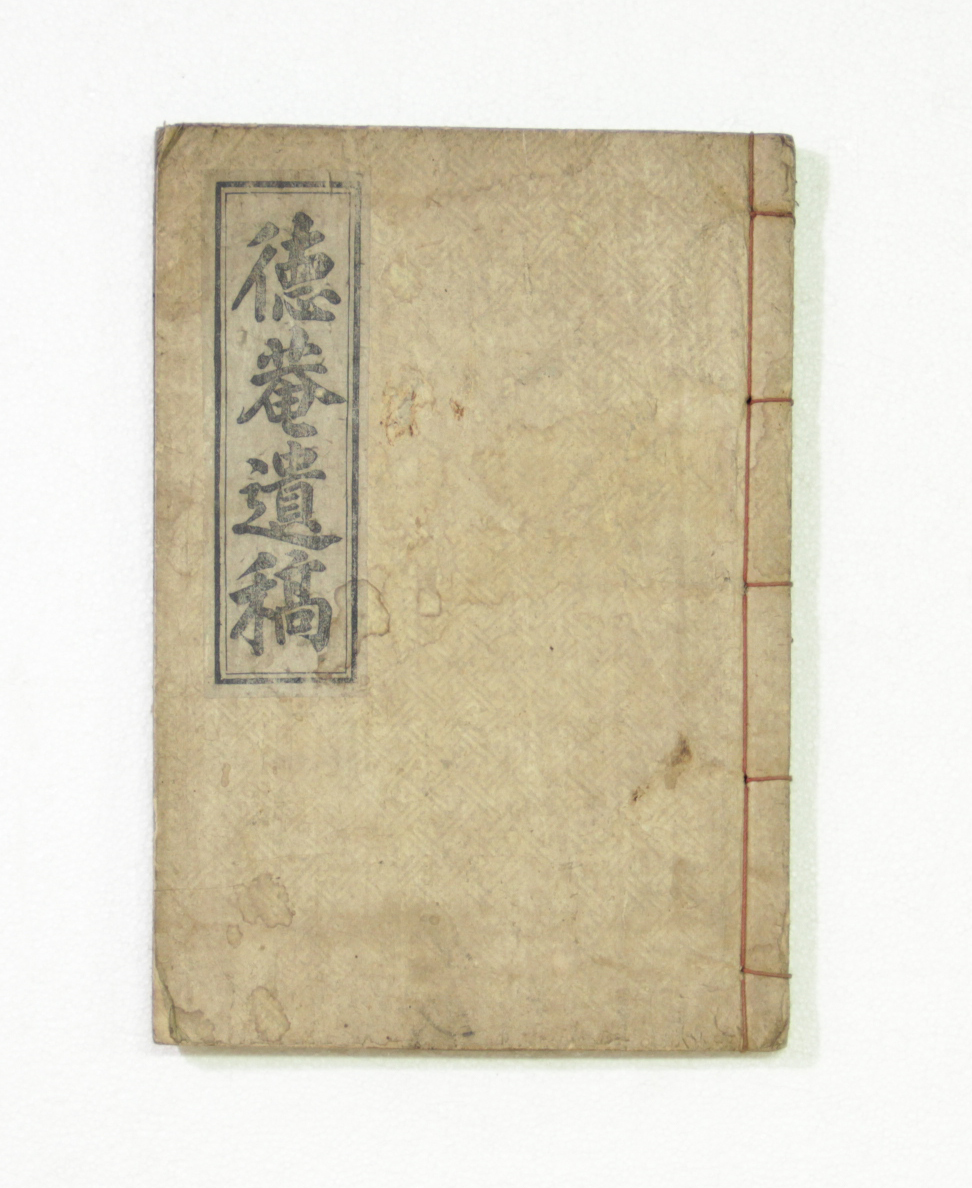 德菴遺稿